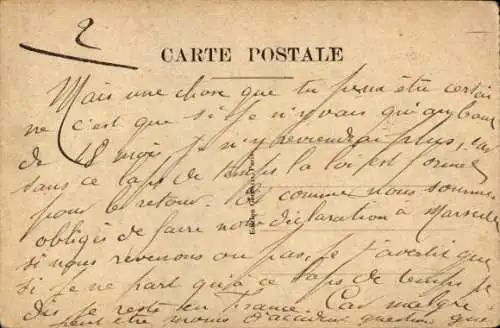 2
CARTE POSTALE
Mais une chose que tu peux être certai
ne c'est que si je n'y vais qu'au bout
de 18 mois je n'y reviendrai plus, car
sans ce laps de temps la loi est formel
pour le retour. Et comme nous sommes
obligés de faire notre déclaration à Marseille
si nous revenons ou pas, je t'avertis que
si je ne part qu'à ce laps de temps je
dis je reste en France. Car malgré
peut être moins d'accident question que